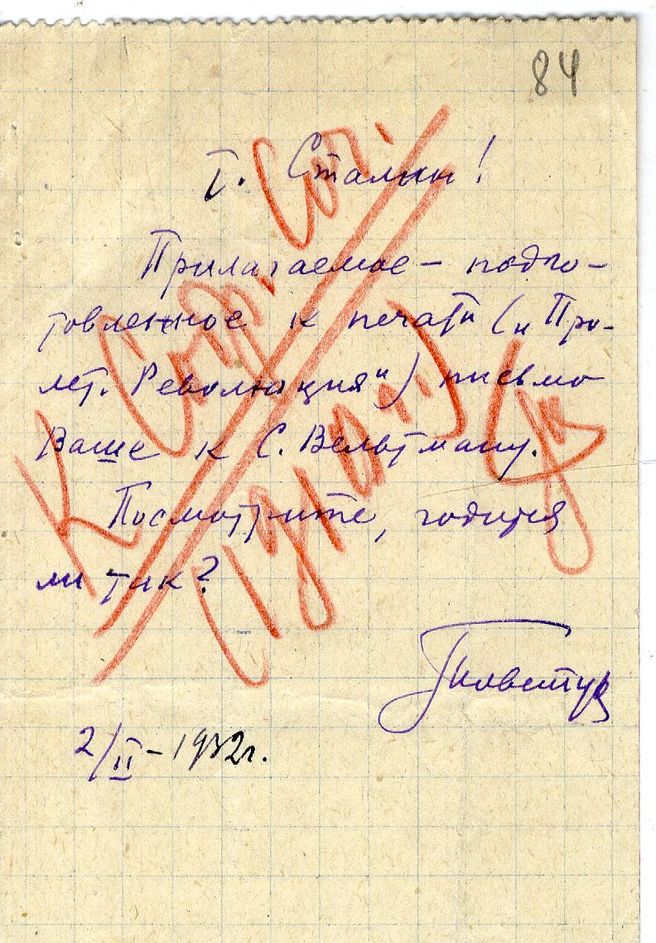 84
Т. Сталин!
Прилагаемое – подго-
товленное к печати („Про-
лет. Революция") письмо
Ваше к С. Вельтману.
Посмотрите, годится
ли так?
2/II – 1932 г.
К
Соч.